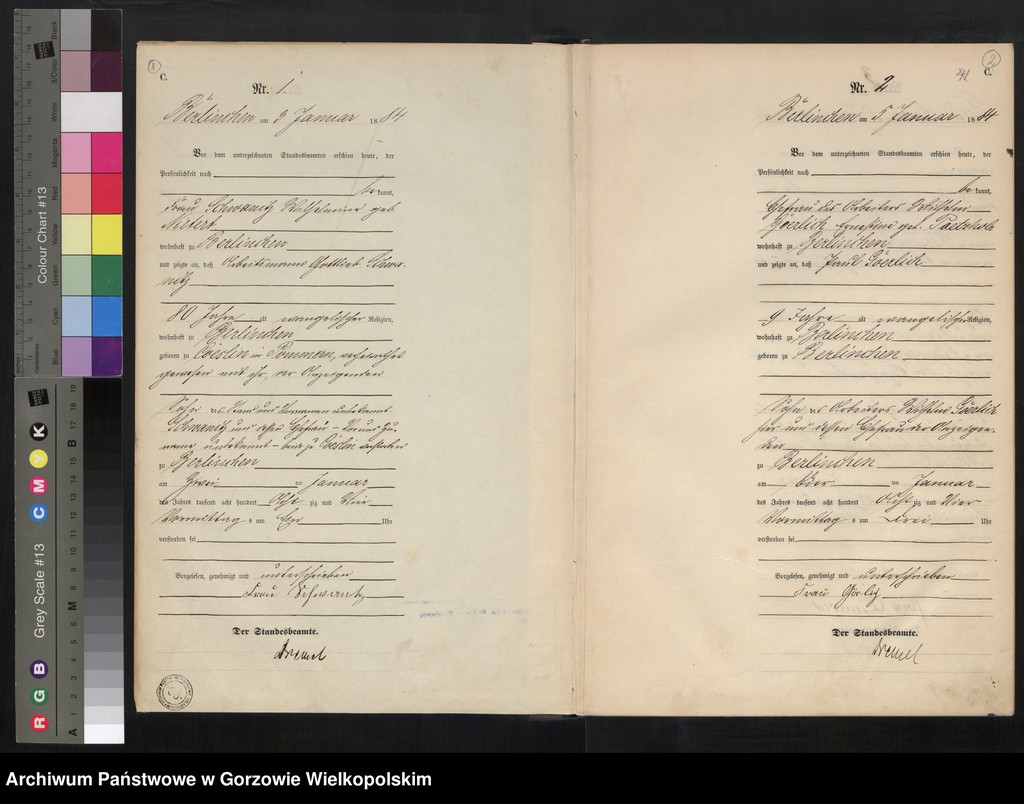 1
C.
Nr. 1
Berlinchen am 3 Januar 1884
Vor dem unterzeichneten Standesbeamten erschien heute, der
Persönlichkeit nach
be kannt,
Frau Schwanitz Wilhelmine geb.
wohnhaft zu Berlinchen
und zeigte an, daß Arbeitsmann Gottlieb Schwa-
nitz
80 Jahre alt evangelischer Religion,
wohnhaft zu Berlinchen
geboren zu Cöslin in Pommern, verheirathet
gewesen mit ihr, der Anzeigenden
Sohn des Stand und Vornamen unbekannt
Schwanitz und dessen Ehefrau - Vor und Zu-
name unbekannt - zu Cöslin verstorben
zu Berlinchen
am Zwei ten Januar
des Jahres tausend acht hundert Acht zig und Vier
Vormittag s um Uhr
verstorben sei
Vorgelesen, genehmigt und unterschrieben
Frau Schwantz
Der Standesbeamte.
Dremel
2
41
C.
Nr. 2
Berlinchen am 5 Januar 1884
Vor dem unterzeichneten Standesbeamten erschien heute, der
Persönlichkeit nach
be kannt,
Ehefrau des Arbeiters Wilhelm
Göerlich Ernestine geb.
wohnhaft zu Berlinchen
und zeigte an, daß Paul Göerlich
9 Jahre alt evangelischer Religion,
wohnhaft zu Berlinchen
geboren zu Berlinchen
Sohn des Arbeiters Wilhelm Göerlich
hier und dessen Ehefrau der Anzeigen-
den
zu Berlinchen
am Vier ten Januar
des Jahres tausend acht hundert Acht zig und Vier
Vormittag s um Drei Uhr
verstorben sei
Vorgelesen, genehmigt und unterschrieben
Frau Görlig
Der Standesbeamte.
Dremel
Colour Chart #13
Grey Scale #13
Black
3/Color
White
Magenta
Red
Yellow
Green
Cyan
Blue
R G B C M Y K
A 1 2 3 4 5 6 M 8 9 10 11 12 13 14 15 B 17 18 19
Archiwum Państwowe w Gorzowie Wielkopolskim